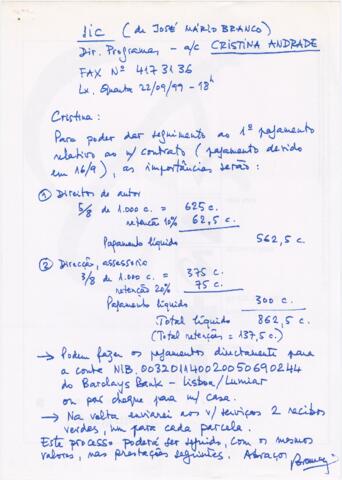 sic (de JOSÉ MÁRIO BRANCO)
Dir. Programas - a/c CRISTINA ANDRADE
FAX Nº 4173136
Lx. Quarta 22/09/99 - 18h
Cristina:
Para poder dar seguimento ao 1º pagamento
relativo ao n/ contrato (pagamento devido
em 16/9), as importâncias serão:
① Direitos de autor
5/8 de 1.000 c. = 625 c.
retenção 10% 62,5 c.
Pagamento líquido 562,5 c.
② Direcção, assessoria
3/8 de 1.000 c. = 375 c.
retenção 20% 75 c.
Pagamento líquido 300 c.
Total líquido 862,5 c.
(Total retenções = 137,5 c.)
→ Podem fazer os pagamentos directamente para
a conta NIB. 003201140020050690244
do Barclays Bank - Lisboa/Lumiar
ou por cheque para m/ casa.
→ Na volta enviarei aos v/ serviços 2 recibos
verdes, um para cada parcela.
Este processo poderá ser seguido, com os mesmos
valores, nas prestações seguintes. Abraços